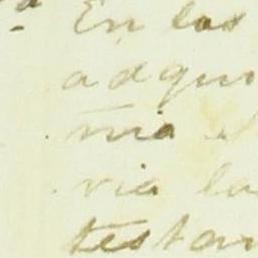 a En los
adqui
mia
via la
testam